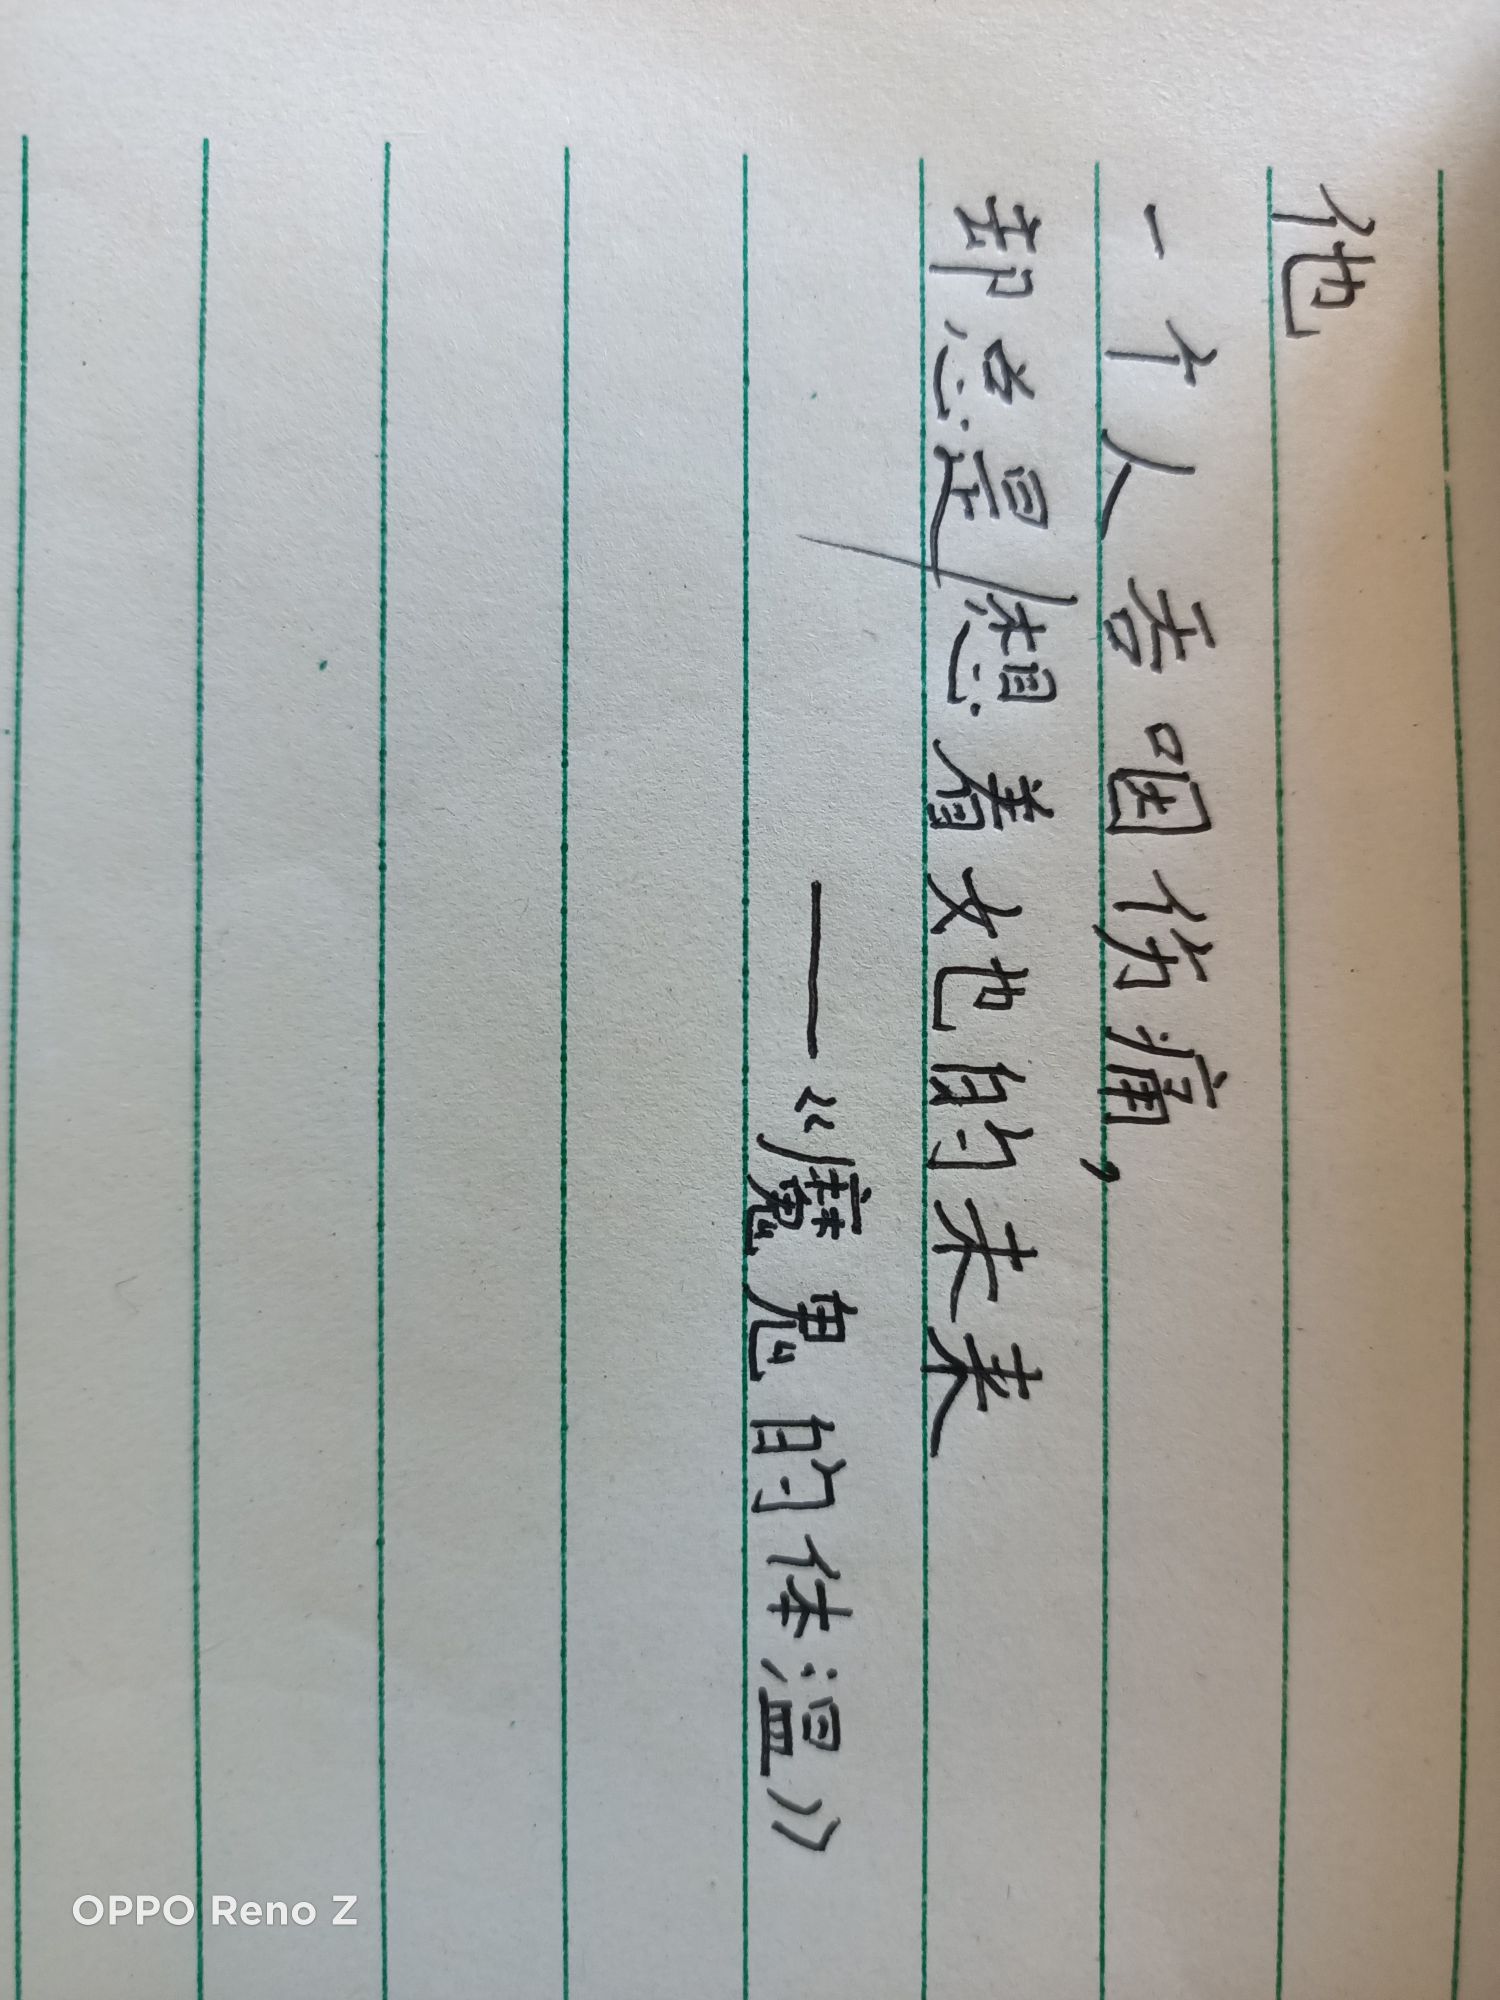 他
一个人吞咽伤痛，
却总是想着她的未来
——《魔鬼的体温》
OPPO Reno Z